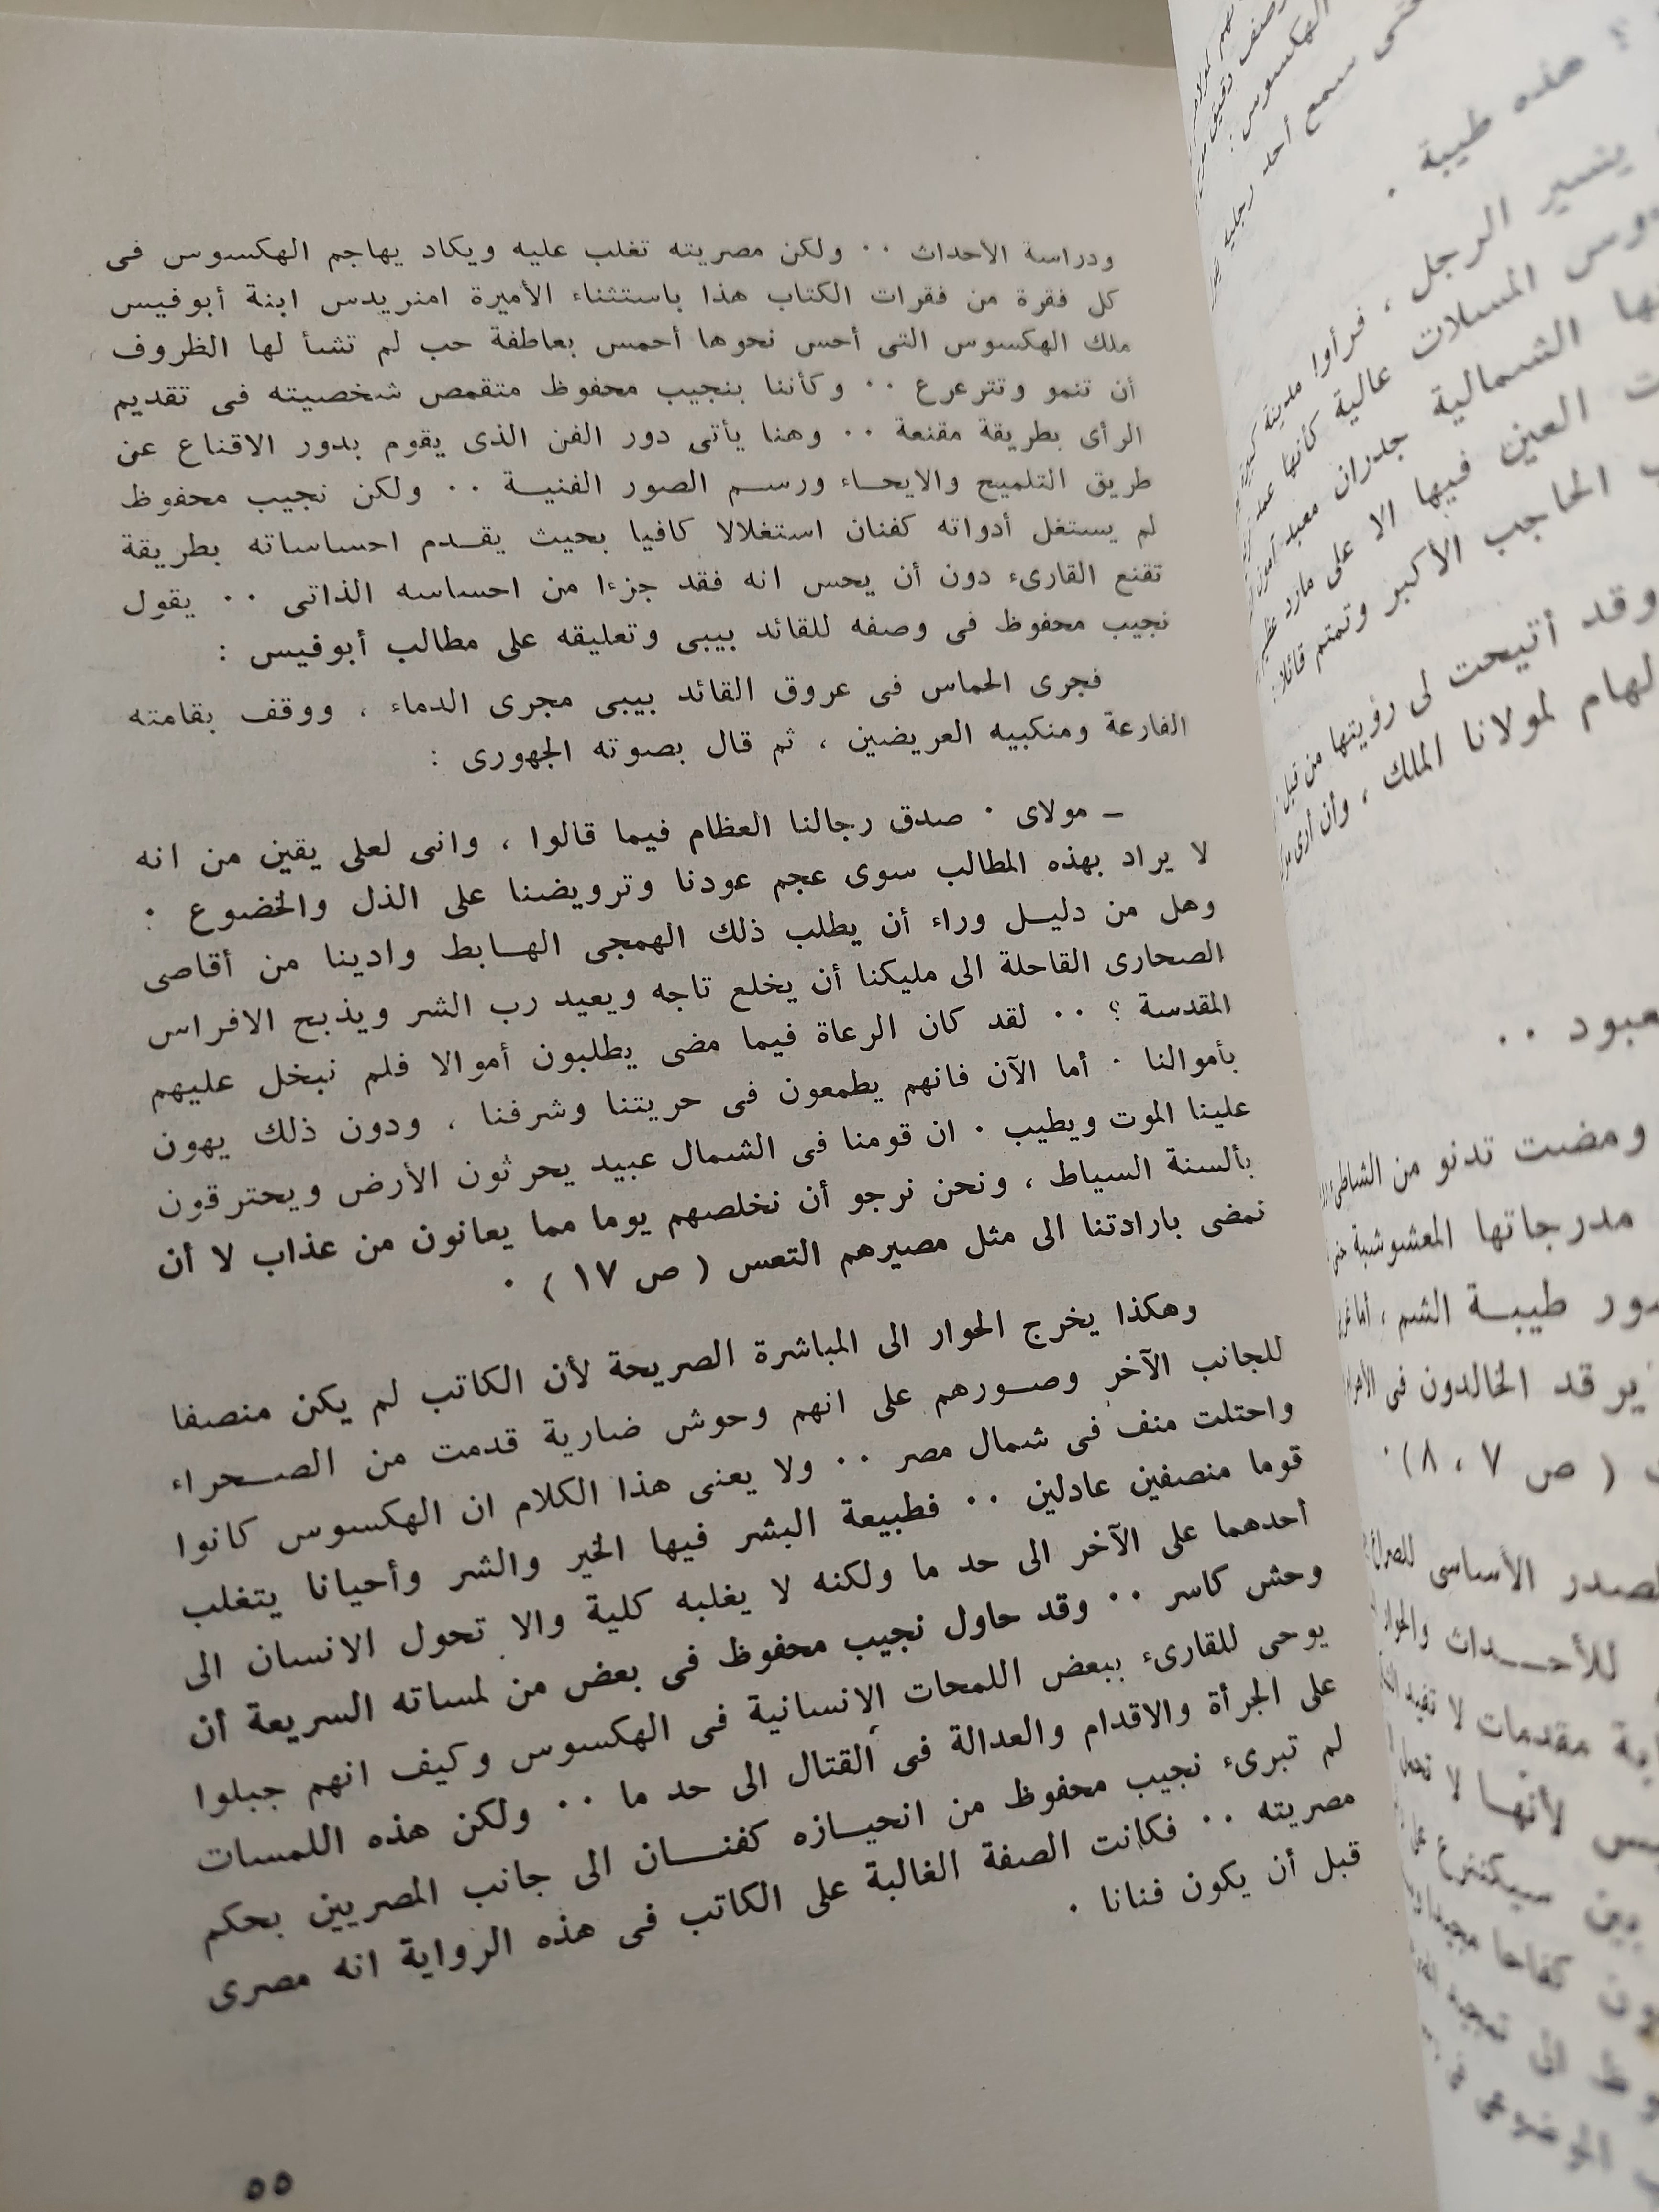 ودراسة الأحداث ٠٠ ولكن مصريته تغلب عليه ويكاد يهاجم الهكسوس فى
كل فقرة من فقرات الكتاب هذا باستثناء الأميرة امنريدس ابنة أبوفيس
ملك الهكسوس التى أحس نحوها أحمس بعاطفة حب لم تشأ لها الظروف
أن تنمو وتترعرع ٠٠ وكأننا بنجيب محفوظ متقمص شخصيته فى تقديم
الرأى بطريقة مقنعة ٠٠ وهنا يأتى دور الفن الذى يقوم بدور الاقناع عن
طريق التلميح والايحاء ورسم الصور الفنية ٠٠ ولكن نجيب محفوظ
لم يستغل أدواته كفنان استغلالا كافيا بحيث يقدم احساساته بطريقة
تقنع القارىء دون أن يحس انه فقد جزءا من احساسه الذاتى ٠٠ يقول
نجيب محفوظ فى وصفه للقائد بيبى وتعليقه على مطالب أبوفيس :
فجرى الحماس فى عروق القائد بيبى مجرى الدماء ، ووقف بقامته
الفارعة ومنكبيه العريضين ، ثم قال بصوته الجهورى :
ـ مولاى ٠ صدق رجالنا العظام فيما قالوا ، وانى لعلى يقين من انه
لا يراد بهذه المطالب سوى عجم عودنا وترويضنا على الذل والخضوع :
وهل من دليل وراء أن يطلب ذلك الهمجى الهابط وادينا من أقاصى
الصحارى القاحلة الى مليكنا أن يخلع تاجه ويعيد رب الشر ويذبح الافراس
المقدسة ؟ ٠٠ لقد كان الرعاة فيما مضى يطلبون أموالا فلم نبخل عليهم
بأموالنا ٠ أما الآن فانهم يطمعون فى حريتنا وشرفنا ، ودون ذلك يهون
علينا الموت ويطيب ٠ ان قومنا فى الشمال عبيد يحرثون الأرض ويحترقون
بألسنة السياط ، ونحن نرجو أن نخلصهم يوما مما يعانون من عذاب لا أن
نمضى بارادتنا الى مثل مصيرهم التعس ( ص ١٧ ) ٠
وهكذا يخرج الحوار الى المباشرة الصريحة لأن الكاتب لم يكن منصفا
للجانب الآخر وصورهم على انهم وحوش ضارية قدمت من الصحراء
واحتلت منف فى شمال مصر ٠٠ ولا يعنى هذا الكلام ان الهكسوس كانوا
قوما منصفين عادلين ٠٠ فطبيعة البشر فيها الخير والشر وأحيانا يتغلب
أحدهما على الآخر الى حد ما ولكنه لا يغلبه كلية والا تحول الانسان الى
وحش كاسر ٠٠ وقد حاول نجيب محفوظ فى بعض من لمساته السريعة أن
يوحى للقارىء ببعض اللمحات الانسانية فى الهكسوس وكيف انهم جبلوا
على الجرأة والاقدام والعدالة فى القتال الى حد ما ٠٠ ولكن هذه اللمسات
لم تبرىء نجيب محفوظ من انحيازه كفنان الى جانب المصريين بحكم
مصريته ٠٠ فكانت الصفة الغالبة على الكاتب فى هذه الرواية انه مصرى
قبل أن يكون فنانا ٠
٥٥
الهكسوس :
حتى سمع أحد رجليه
؟ هذه طيبة ٠
يشير الرجل ، فرأوا مدينة كبيرة
المسلات عالية كأنها عمد
الشمالية جدران معبد آمون
العين فيها الا على مارد عظيم
الحاجب الأكبر وتمتم قائلا :
وقد أتيحت لى رؤيتها من قبل
لمولانا الملك ، وأن أرى
٠٠
ومضت تدنو من الشاطىء
مدرجاتها المعشوشبة
طيبة الشم ، أما
يرقد الخالدون فى
( ص ٧ ، ٨ ) ٠
الأساسى للصراع
للأحداث والحوار
مقدمات لا تفيد
لأنها لا
بين سيكننرع على
كفاحا مجيدا